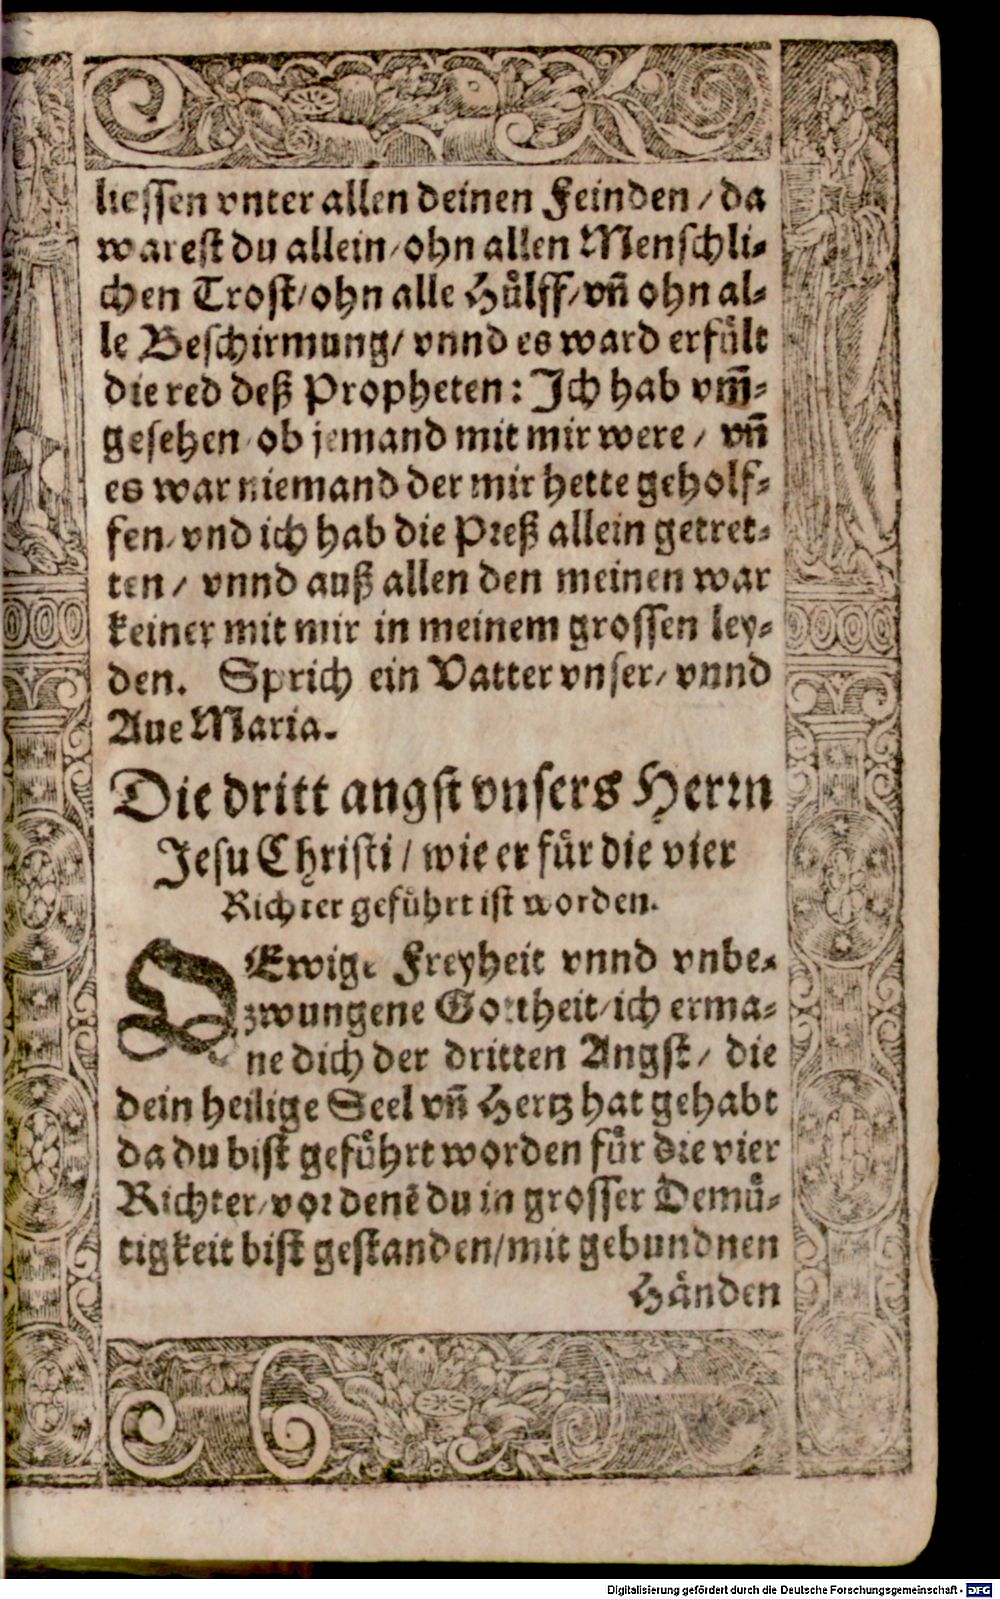 liessen vnter allen deinen Feinden / da
warest du allein / ohn allen Menschli-
chen Trost / ohn alle Hülff / vñ ohn al-
le Beschirmung / vnnd es ward erfült
die red deß Propheten : Ich hab vm̃-
gesehen ob jemand mit mir were / vñ
es war niemand der mir hette geholf-
fen / vnd ich hab die Preß allein getret-
ten / vnnd auß allen den meinen war
keiner mit mir in meinem grossen ley-
den. Sprich ein Vatter vnser / vnnd
Aue Maria.
Die dritt angst vnsers Herrn
Jesu Christi / wie er für die vier
Richter geführt ist worden.
O Ewige Freyheit vnnd vnbe-
zwungene Gottheit / ich erma-
ne dich der dritten Angst / die
dein heilige Seel vñ Hertz hat gehabt
da du bist geführt worden für die vier
Richter / vor denē du in grosser Demü-
tigkeit bist gestanden / mit gebundnen
Händen
Digitalisierung gefördert durch die Deutsche Forschungsgemeinschaft - DFG